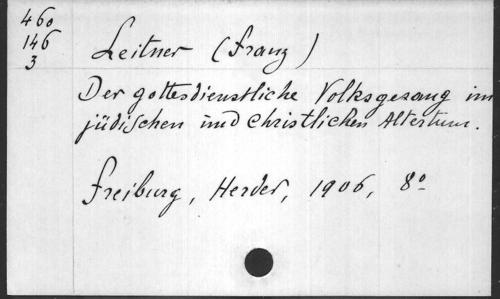 460
146
3
Leitner (Franz)
Der gottesdienstliche Volksgesang im
jüdischen und christlichen Altertum.
Freiburg, Herder, 1906, 8º